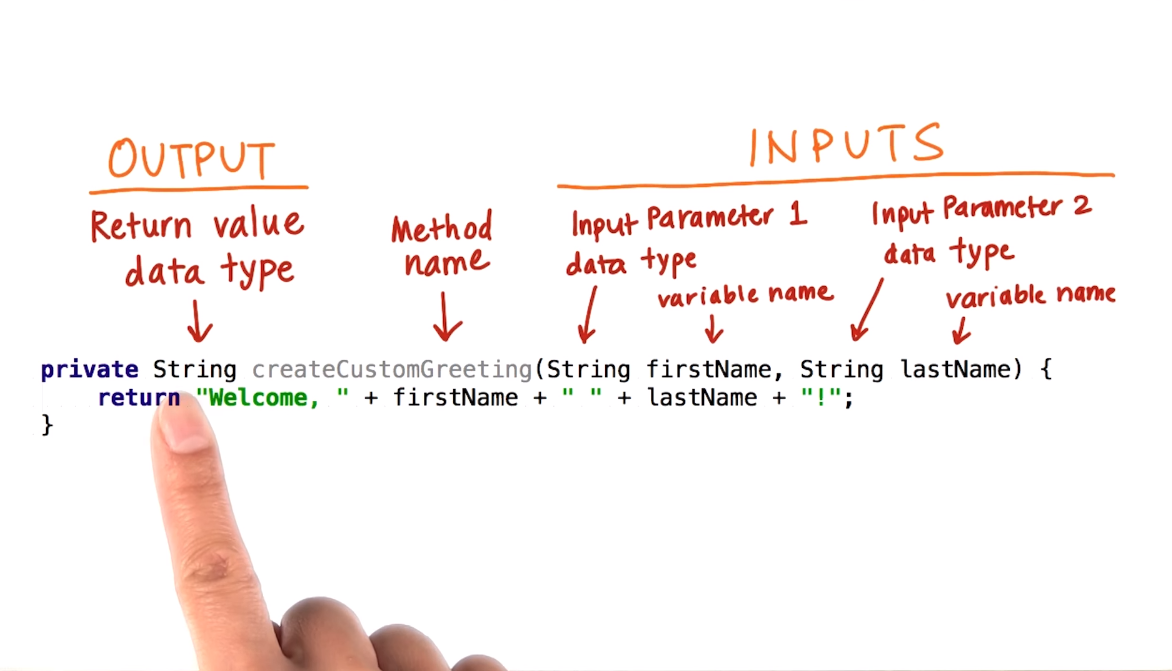 OUTPUT
INPUTS
Return value
data type
Method
name
Input Parameter 1
data type
variable name
Input Parameter 2
data type
variable name
private String createCustomGreeting(String firstName, String lastName) {
return "Welcome, " + firstName + " " + lastName + "!";
}